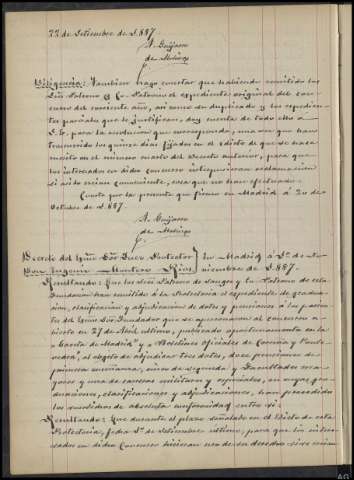 22 de Setiembre de 1.887.
A. Guijarro
de Molina
Diligencia: Tambien hago constar que habiendo remitido los
Sres Patrono y Co-Patrono el expediente original del con-
curso del corriente año, asi como su duplicado y los expedien-
tes parciales que le justifican, doy cuenta de todo ello a
S.E. para la resolucion que corresponda, una vez que han
transcurrido los quince dias fijados en el edicto de que se hace
mérito en el mismo exorto del Decreto anterior, para que
los interesados en dicho concurso interpusieran reclamacion
si asi lo creian conveniente, cosa que no han efectuado.
Consta por la presente que firmo en Madrid á 20 de
Octubre de 1.887.
A. Guijarro
de Molina
Decreto del Excmo Señor Juez Protector
Don Eugenio Montero Rios
En Madrid á 5 de No-
viembre de 1.887.
Resultando: Que los Sres Patrono de Sangre y Co-Patrono de esta
Fundacion han remitido á la Protectoria el expediente de gradua-
cion, clasificacion y adjudicacion de dotes y pensiones á los parien-
tes del Excmo Señor Fundador que se presentaron al concurso a-
bierto en 27 de Abril último, publicado oportunamente en la
"Gaceta de Madrid" y "Boletines oficiales de Coruña y Ponte-
vedra", al objeto de adjudicar tres dotes, doce pensiones de
primera enseñanza, cinco de segunda y Facultades ma-
yores y una de carreras militares y especiales, en cuyas gra-
duaciones, clasificaciones y adjudicaciones, han procedido
los susodichos de absoluta conformidad entre si.
Resultando: Que durante el plazo señalado en el Edicto de esta
Protectoria, fecha 5 de Setiembre último, para que los intere-
sados en dicho Concurso hiciesen uso de su derecho si se creian
AG